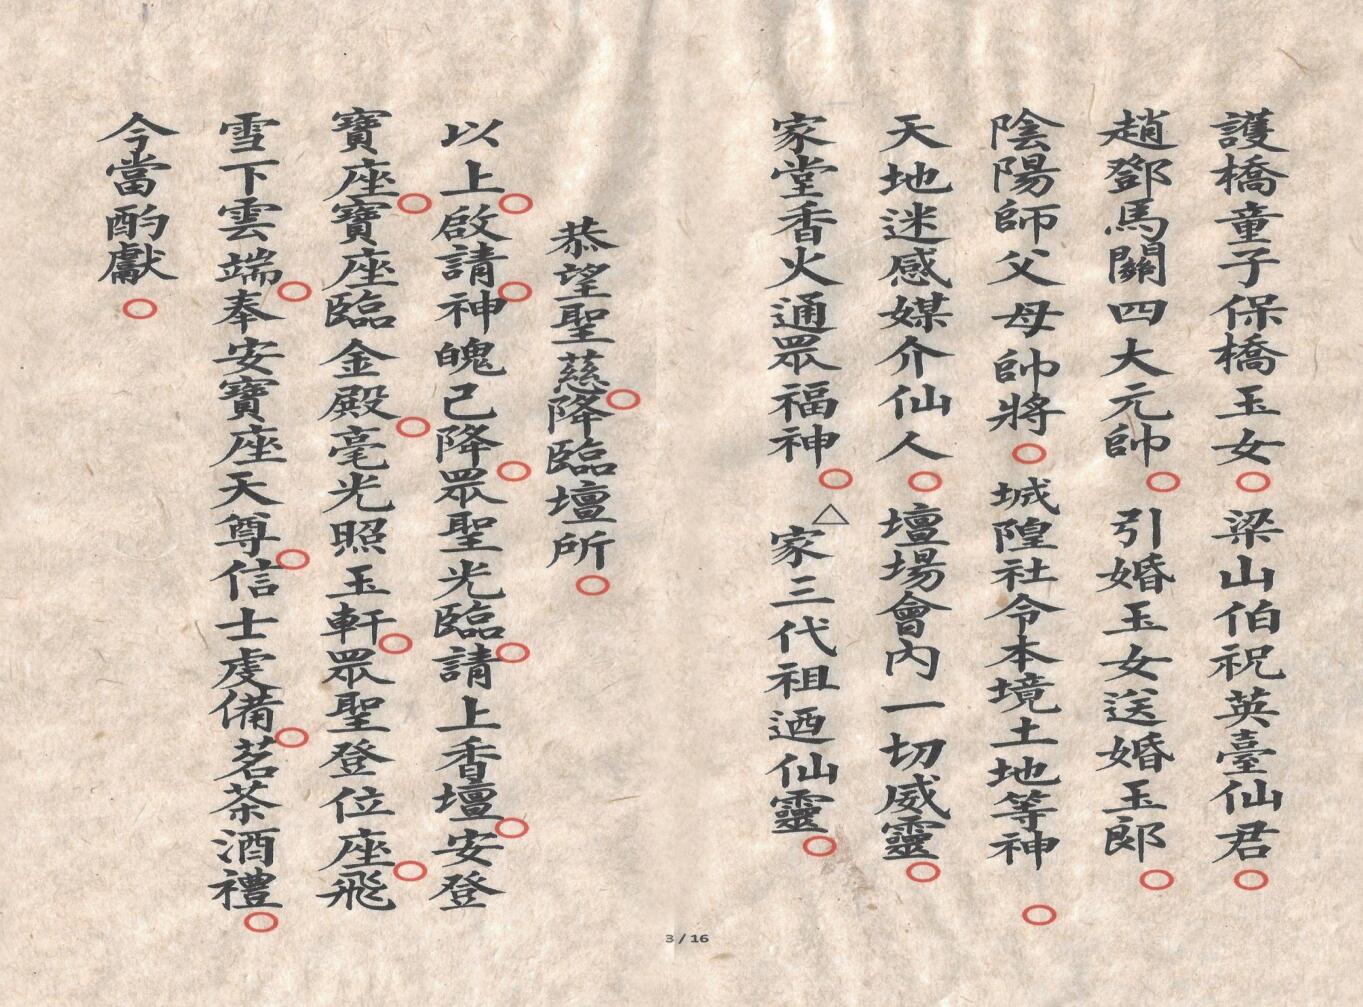 護橋童子保橋玉女○梁山伯祝英臺仙君○
趙鄧馬關四大元帥○引婚玉女送婚玉郎○
陰陽師父母帥將○城隍社令本境土地等神○
天地迷感媒介仙人○壇場會內一切威靈○
家堂香火通眾福神○△家三代祖迺仙靈○
恭望聖慈○降臨壇所○
以上○啟請○神魄已降○眾聖光臨○請上香壇○安登
寶座○寶座臨金殿○毫光照玉軒○眾聖登位座○飛
雪下雲端○奉安寶座天尊○信士虔備○茗茶酒禮○
今當酌獻○
3 / 16